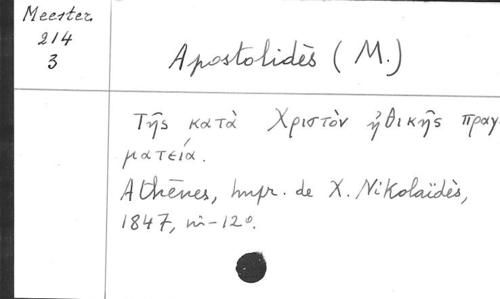 Meester
214
3
Apostolidès (M.)
Τῆς κατὰ Χριστὸν ἠθικῆς πραγ
ματεία.
Athènes, Impr. de X. Nikolaïdès,
1847, in-12º.